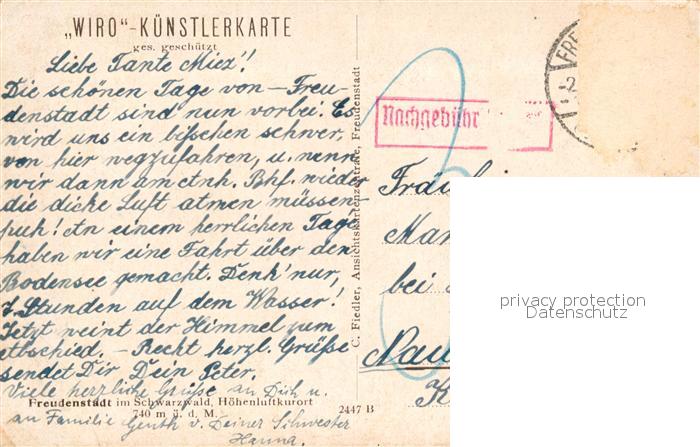 „WIRO"-KÜNSTLERKARTE
ges. geschützt
Liebe Tante Miez'!
Die schönen Tage von - Freu-
denstadt sind nun vorbei. Es
wird uns ein bißchen schwer,
von hier wegzufahren, u. wenn
wir dann am Bhf. wieder
die dicke Luft atmen müssen-
puh! An einem herrlichen Tage
haben wir eine Fahrt über den
Bodensee gemacht. Denk' nur,
7 Stunden auf dem Wasser!
Jetzt weint der Himmel zum
Abschied. - Recht herzl. Grüße
sendet Dir Dein Peter.
Viele herzliche Grüße an Dich u.
Freudenstadt im Schwarzwald, Höhenluftkurort
an Familie Genth v. Deiner Schwester
740 m ü. d. M.
2447 B
Hanna.
C. Fiedler, Ansichtskartenzentrale, Freudenstadt
Nachgebühr
FRE
-2.
3
Fräul
Mar
bei
Nau
K
privacy protection
Datenschutz